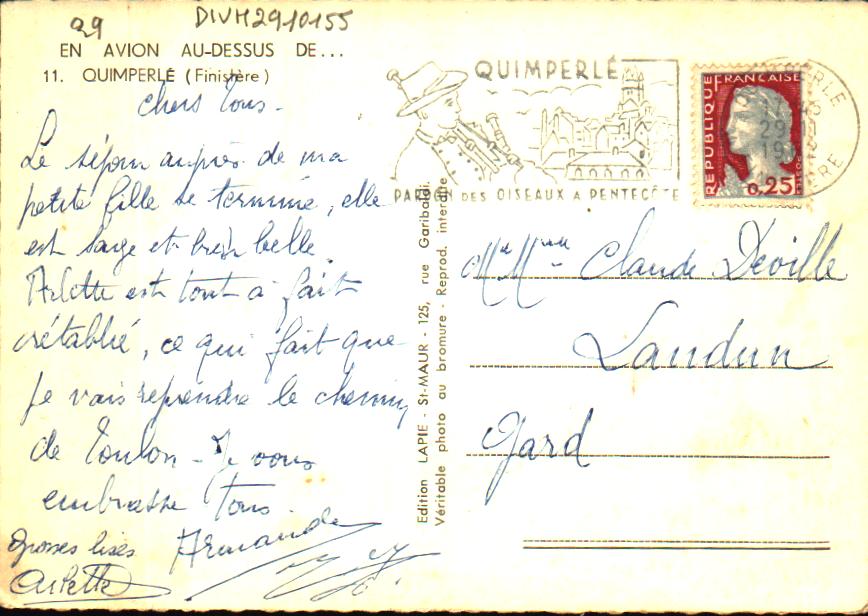 29
DIVH2910155
EN AVION AU-DESSUS DE...
11. QUIMPERLÉ (Finistère)
chers Tous.
Le séjour auprès de ma
petite fille se termine, elle
est sage et bien belle.
Arlette est tout à fait
rétablie, ce qui fait que
je vais reprendre le chemin
de Toulon. Je vous
embrasse Tous.
Armande
Grosses bises
Arlette
Edition LAPIE - St-MAUR - 125, rue Garibaldi.
Véritable photo au bromure - Reprod. interdite
QUIMPERLÉ
PARDON DES OISEAUX A PENTECÔTE
RÉPUBLIQUE FRANÇAISE
0,25
Claude Déville
Laudun
Gard